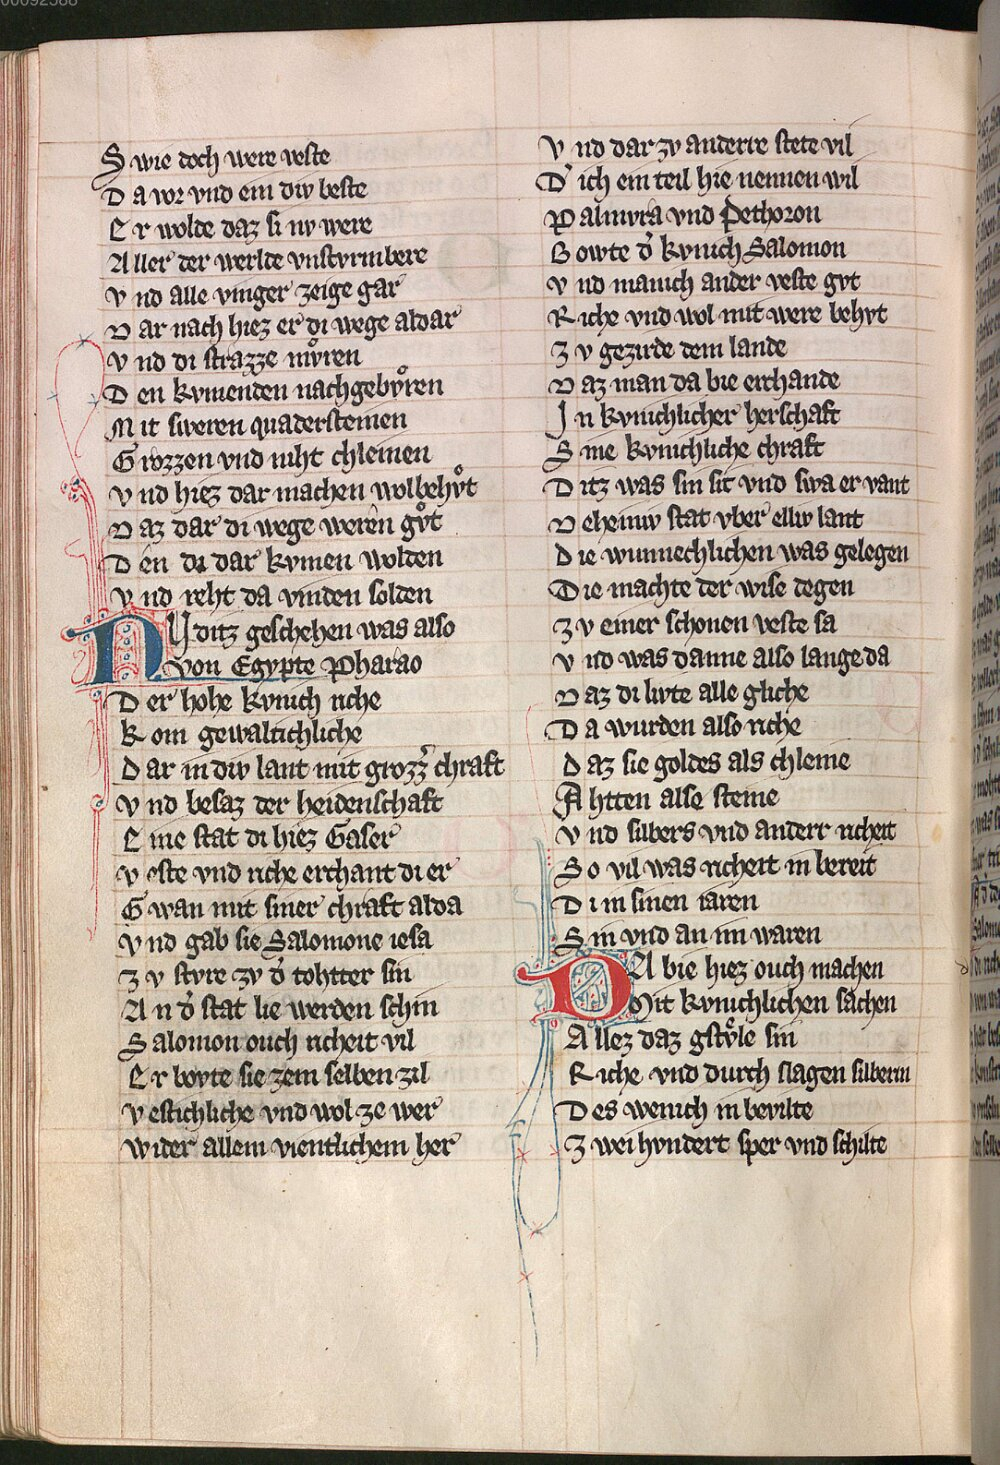 00092588
Swie doch were veste
Da vor vnd ein div beste
Er wolde daz si nv were
Aller der werlde vnstvrmbere
Vnd alle vinger zeige gar
Dar nach hiez er di wege aldar
Vnd di strazze mvͦren
Den kvmenden nachgebvͦren
Mit sweren quadersteinen
Grozzen vnd niht chleinen
Vnd hiez dar machen wolbehvͦt
Daz dar di wege weren gvͦt
Den di dar kvmen wolden
Vnd reht da vinden solden
NV ditz geschehen was also
Von Egypte Pharao
Der hohe kvnich riche
Kom gewaltichliche
Dar in div lant mit grozz͛ chraft
Vnd besaz der heidenschaft
Eine stat di hiez Gaser
Veste vnd riche erchant di er
Gwan mit siner chraft alda
Vnd gab sie Salomone iesa
Zv styre zv d͛ tohtter sin
An d͛ stat lie werden schin
Salomon ouch richeit vil
Er bovte sie zem selben zil
Vestichliche vnd wol ze wer
Wider allem vientlichem her
Vnd dar zv anderre stete vil
D͛ ich ein teil hie nennen wil
Palmyra vnd Pethoron
Bowte d͛ kvnich Salomon
Vnd manich ander veste gvt
Riche vnd wol mit were behvt
Zv gezirde dem lande
Daz man da bie erchande
In kvnichlicher herschaft
Sine kvnichliche chraft
Ditz was sin sit vnd swa er vant
Deheiniv stat vber elliv lant
Die wunnechlichen was gelegen
Die machte der wise degen
Zv einer schonen veste sa
Vnd was danne also lange da
Daz di livte alle gliche
Da wurden also riche
Daz sie goldes als chleine
Ahtten alse steine
Vnd silbers vnd anderr richeit
So vil was richeit in bereit
Di in sinen iaren
Sin vnd an im waren
DA bie hiez ouch machen
Mit kvnichlichen sachen
Allez daz gstvͦle sin
Riche vnd durch slagen silberin
Des wenich in bevilte
Zwei hvndert sper vnd schilte